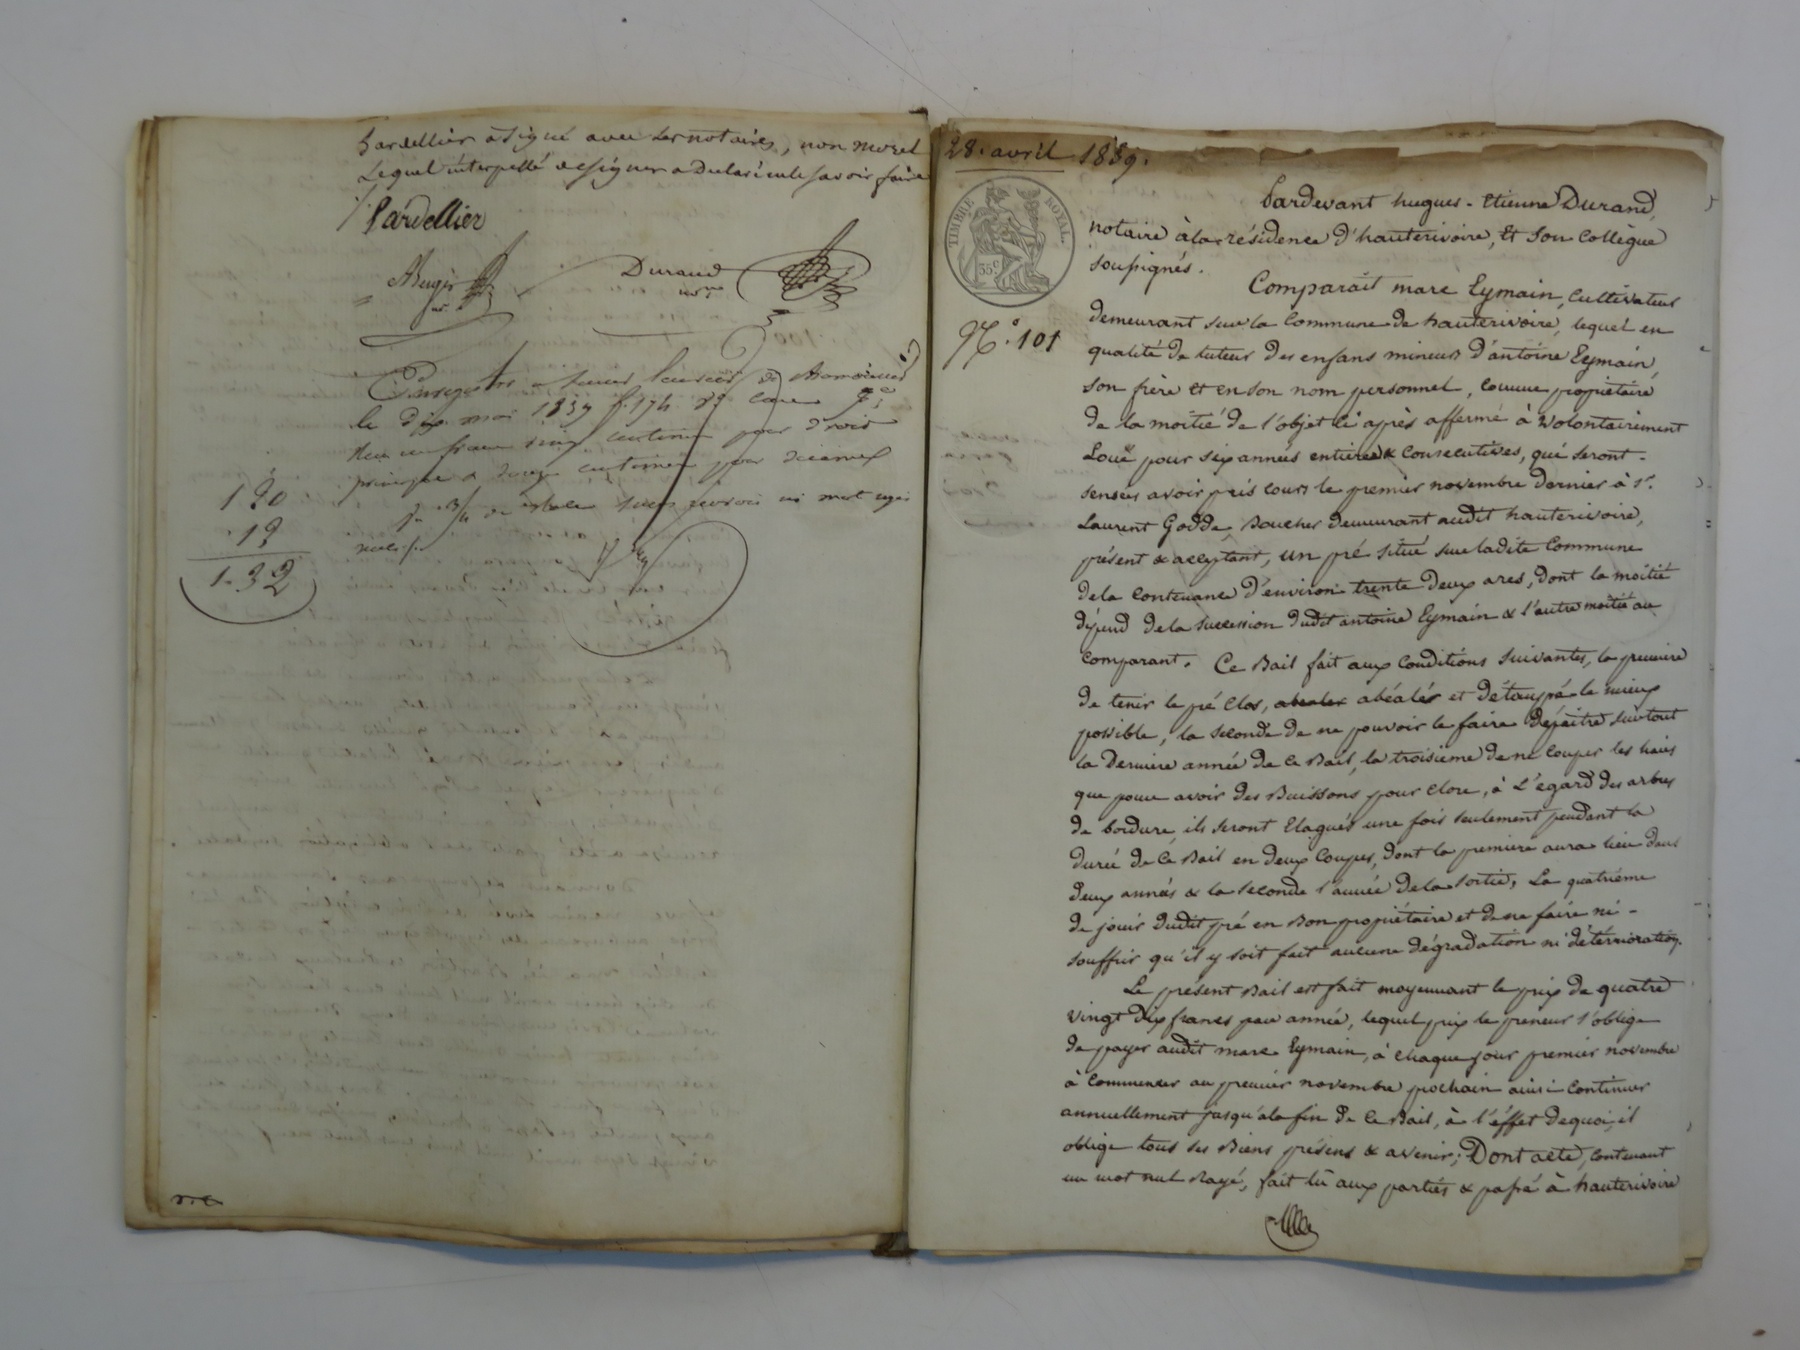 Pardellier a signé avec les notaires, non morel
Lequel interpellé de signer a declaré ne le savoir faire
Pardellier
Augis
Durand
nore
Enregistré
le dix mai 1839 f. 174
un franc vingt centimes pour droit
principal & douze centimes pour décime
1 20
12
1.32
28. avril 1839.
TIMBRE ROYAL.
35c
No. 101
Pardevant hugues-Etienne Durand,
notaire à la résidence d'hauterivoire, Et Son Collègue
soussignés.
Comparait marc Eymain, Cultivateur
demeurant sur la Commune de hauterivoire, lequel en
qualité de tuteur des enfans mineurs d'antoine Eymain,
son frère et en son nom personnel, comme propriétaire
de la moitié de l'objet ci après affermé à volontairement
Loué pour six années entières & Consecutives, qui seront
sensées avoir pris cours le premier novembre dernier à sr.
Laurent Godde, Boucher demeurant audit hauterivoire,
présent & acceptant, un pré situé sur ladite Commune
de la Contenance d'environ trente deux ares, dont la moitié
dépend de la succession dudit antoine Eymain & l'autre moitié au
comparant. Ce Bail fait aux Conditions suivantes, la première
de tenir le pré Clos, abéalér et détaupé le mieux
possible, la seconde de ne pouvoir le faire dépaitre surtout
la Dernière année de Ce Bail, la troisième de ne Couper les haies
que pour avoir des Buissons pour Clore, à L'égard des arbres
de bordure, ils seront Elagués une fois seulement pendant la
durée de Ce Bail en deux Coupes, dont la première aura lieu dans
deux années & la seconde l'année de la sortie, La quatrième
de jouir dudit pré en Bon propriétaire et de ne faire ni
souffrir qu'il y soit fait aucune dégradation ni détérioration.
Le présent Bail est fait moyennant le prix de quatre
vingt dix francs par année, lequel prix le preneur s'oblige
de payer audit marc Eymain, à Chaque jour premier novembre
à Commencer au premier novembre prochain ainsi Continuer
annuellement jusqu'à la fin de Ce Bail, à l'éffet de quoi, il
oblige tous ses Biens présens & avenir; Dont acte, contenant
un mot nul Rayé, fait lû aux parties & passé à hauterivoire